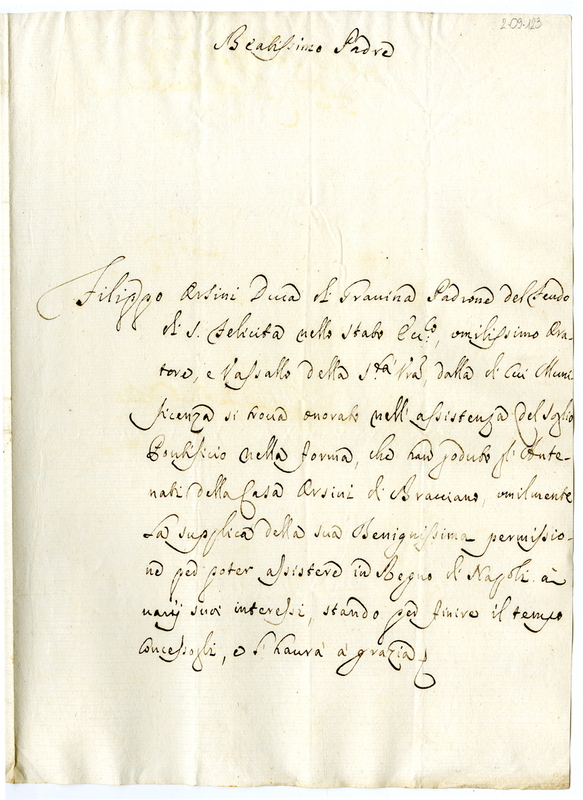 2-09-123
Beatissimo Padre
Filippo Orsini Duca di Gravina Padrone del Feudo
di S. Felicita nello stato Ecc.o, umilissimo Ora-
tore, e Vassallo della S.tà V.ra, dalla di Cui Muni
ficenza si troua onorato nell'assistenza del Soglio
Pontificio nella forma, che han goduto gl'Ante-
nati della Casa Orsini di Bracciano, umilmente
La supplica della sua Benignissima permissio-
ne per poter assistere in Regno di Napoli à
uarij suoi interessi, stando per finire il tempo
concessogli, e l'haurà à grazia